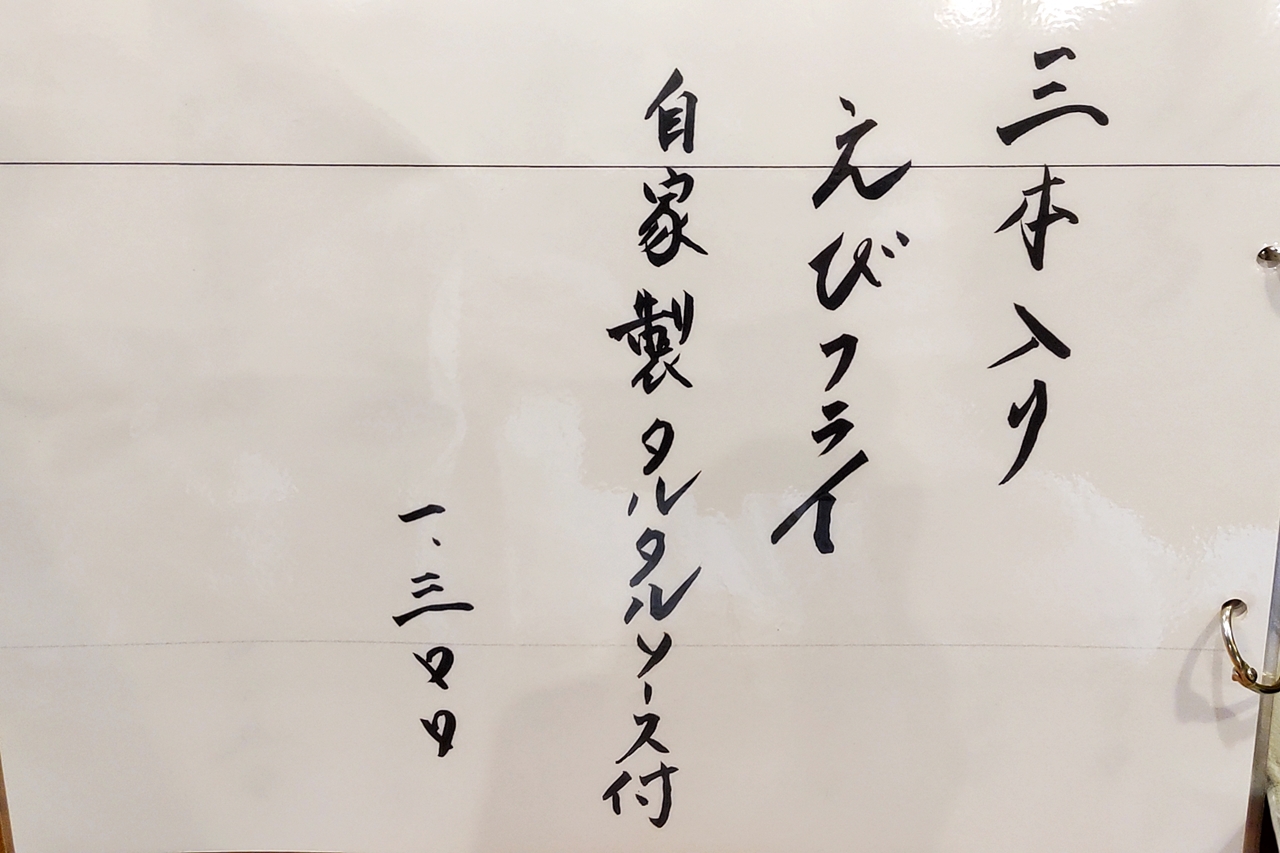 三本入り
えびフライ
自家製タルタルソース付
一、三〇〇